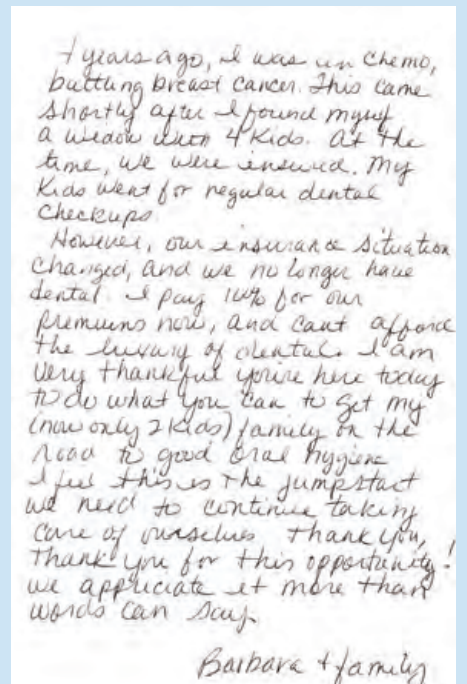 years ago, I was in Chemo,
battling breast cancer. This came
shortly after I found myself
a widow with 4 kids. At the
time, we were insured. My
kids went for regular dental
checkups.
However, our insurance situation
changed, and we no longer have
dental. I pay for our
premiums now, and cant afford
the luxury of dental. I am
very thankful you're here today
to do what you can to get my
(now only 2 kids) family on the
road to good oral hygiene
I feel this is the jumpstart
we need to continue taking
care of ourselves. Thank you,
thank you for this opportunity!
we appreciate it more than
words can say.
Barbara + family